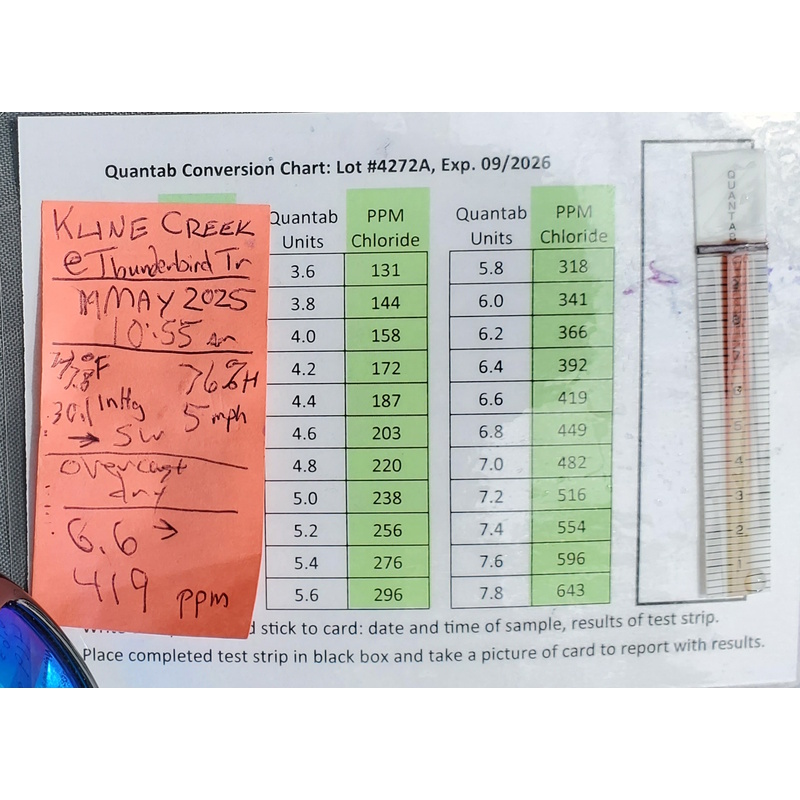 Quantab Conversion Chart: Lot #4272A, Exp. 09/2026
KLINE CREEK
@ Thunderbird Tr
19 MAY 2025
10:55 am
76% H
30.1 inHg 5 mph
→ SW
overcast
dry
6.6 →
419 ppm
Quantab Units PPM Chloride
3.6 131
3.8 144
4.0 158
4.2 172
4.4 187
4.6 203
4.8 220
5.0 238
5.2 256
5.4 276
5.6 296
Quantab Units PPM Chloride
5.8 318
6.0 341
6.2 366
6.4 392
6.6 419
6.8 449
7.0 482
7.2 516
7.4 554
7.6 596
7.8 643
QUANTAB
9
8
7
6
5
4
3
2
1
stick to card: date and time of sample, results of test strip.
Place completed test strip in black box and take a picture of card to report with results.